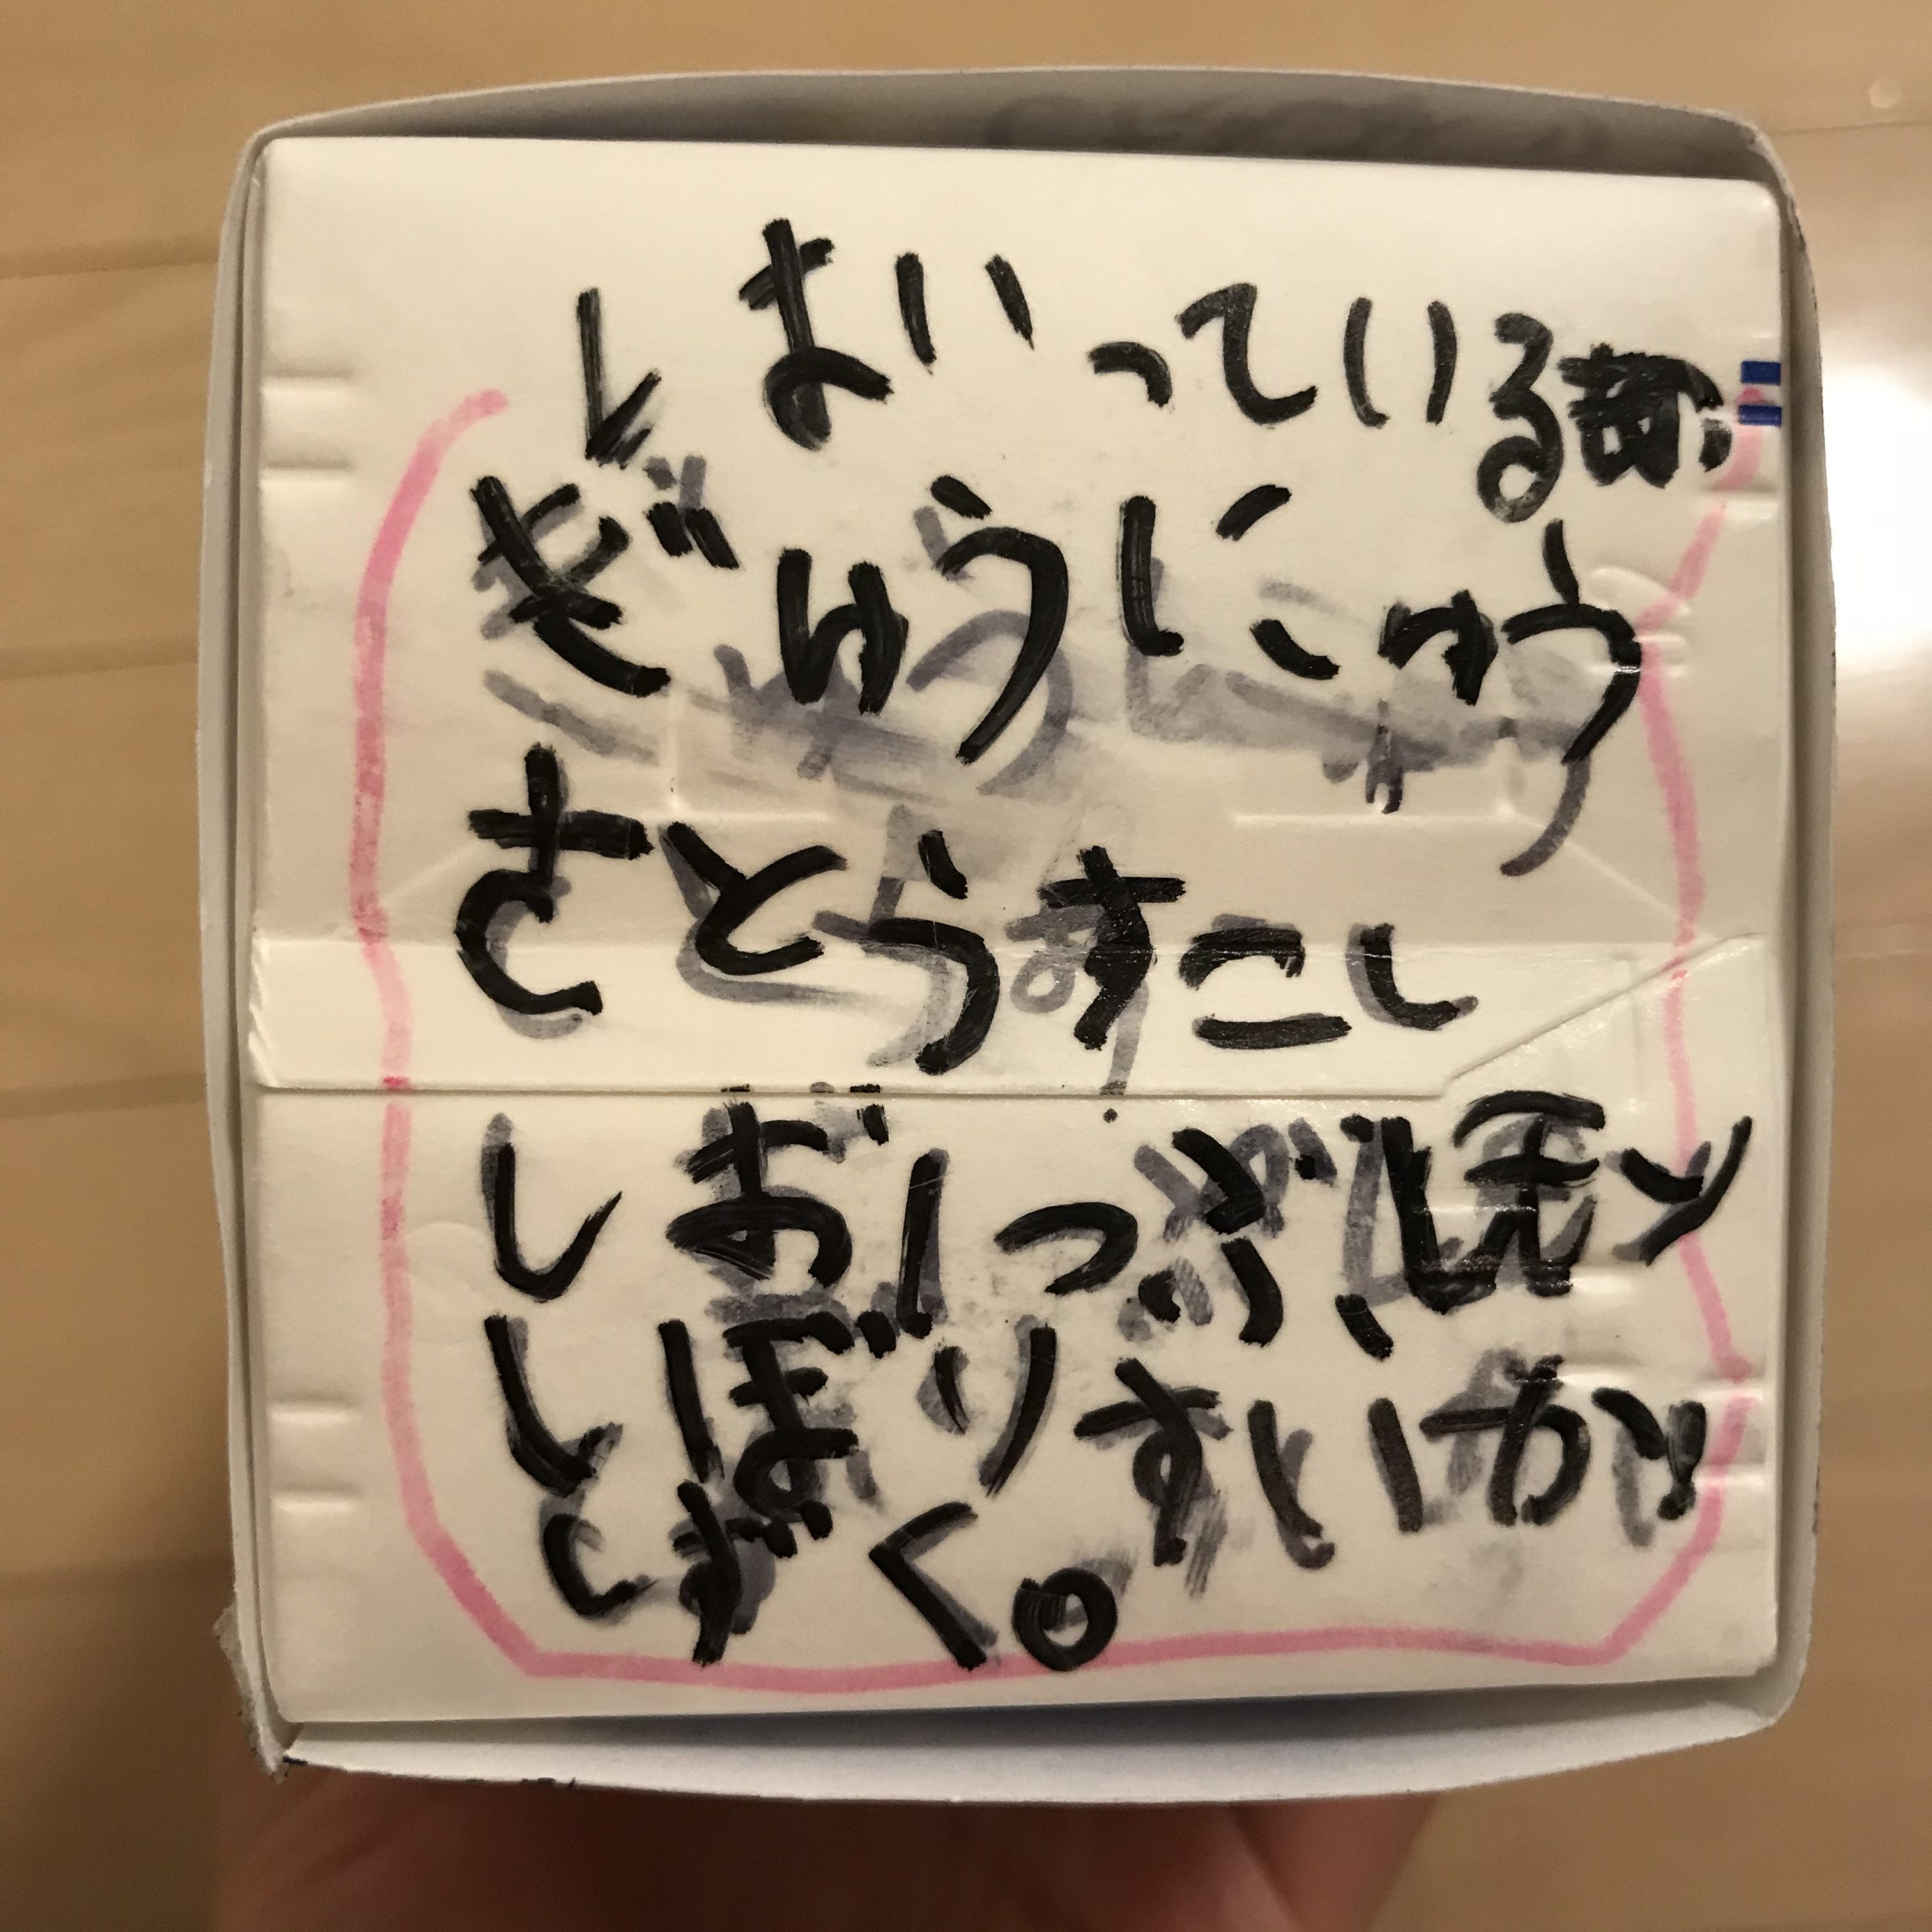 はいっている
ぎゅうにゅう
さとうすこし
しお1つぶ、レモン
しぼりすいか
しずく。